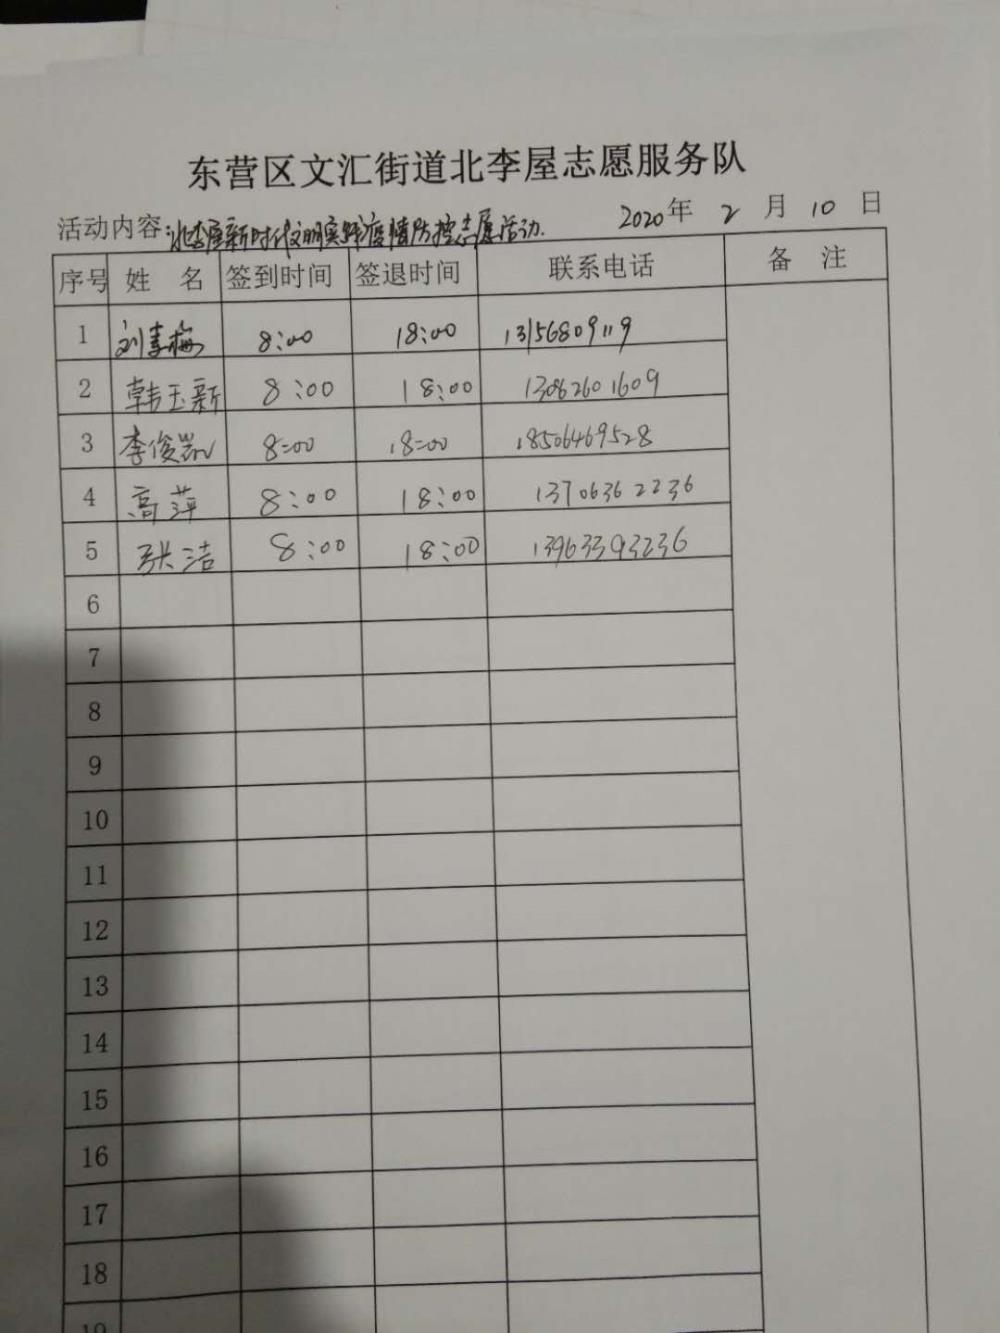 东营区文汇街道北李屋志愿服务队
活动内容:北李屋新时代文明实践疫情防控志愿活动. 2020年 2 月 10 日
序号 姓 名 签到时间 签退时间 联系电话 备 注
1 刘李梅 8:00 18:00 13156809119
2 韩玉新 8:00 18:00 13062601609
3 李俊凯 8:00 18:00 18506469528
4 高萍 8:00 18:00 13706362236
5 张洁 8:00 18:00 13963393236
6
7
8
9
10
11
12
13
14
15
16
17
18
19